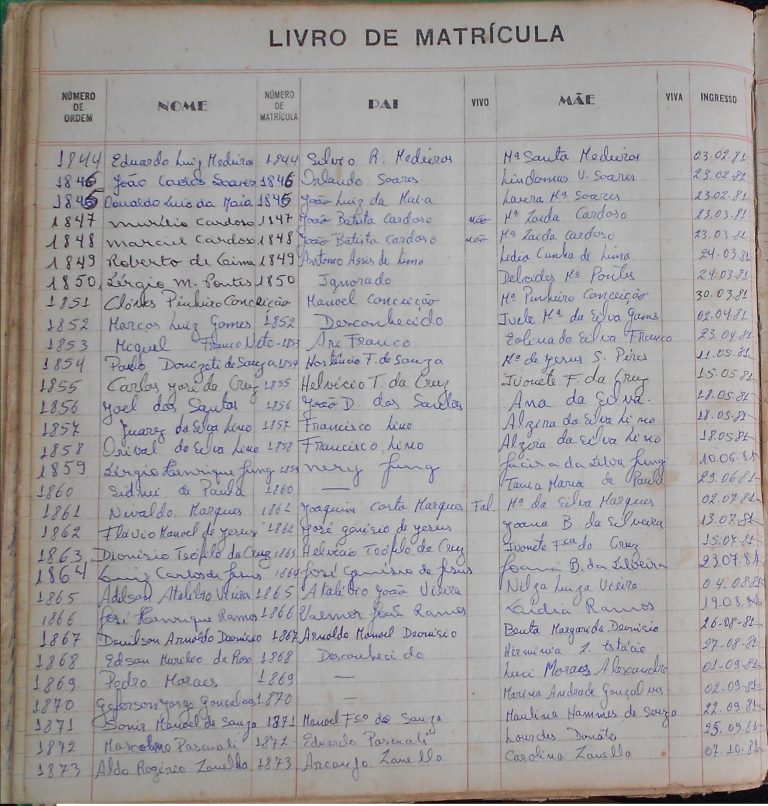 LIVRO DE MATRÍCULA
NÚMERO DE ORDEM NOME NÚMERO DE MATRÍCULA PAI VIVO MÃE VIVA INGRESSO
1844 Eduardo Luiz Medeiros 1844 Silvio R. Medeiros Mª Santa Medeiros 03.02.81
1845 João Carlos Soares 1845 Orlando Soares Lindomar V. Soares 23.02.81
1846 Osvaldo Luis da Maia 1846 João Luiz da Maia Laura Mª Soares 23.02.81
1847 Murilio Cardoso 1847 João Batista Cardoso não Mª Zaida Cardoso 23.03.81
1848 Marciel Cardoso 1848 João Batista Cardoso não Mª Zaida Cardoso 23.03.81
1849 Roberto de Lima 1849 Antonio Assis de Lima Ledia Cunha de Lima 24.03.81
1850 Sérgio M. Pontes 1850 Ignorado Mª Pontes 24.03.81
1851 Clóvis Pinheiro Conceição Manoel Conceição Mª Pinheiro Conceição 30.03.81
1852 Marcos Luiz Gomes 1852 Desconhecido Ivete Mª da Silva Gomes 02.04.81
1853 Miguel Franco Neto 1853 Ari Franco da Silva Franco 23.04.81
1854 Paulo Donizeti de Souza 1854 Hortêncio F. de Souza Mª de Jesus S. Pires 11.05.81
1855 Carlos José da Cruz 1855 Helvécio T. da Cruz Ivonete F. da Cruz 15.05.81
1856 Joel dos Santos 1856 João D. dos Santos Ana da Silva. 18.05.81
1857 Juarez da Silva Lino 1857 Francisco Lino Alzira da Silva Lino 18.05.81
1858 Orival da Silva Lino 1858 Francisco Lino Alzira da Silva Lino 18.05.81
1859 Sérgio Henrique Jung 1859 Nery Jung Jacira da Silva Jung 10.06.81
1860 Sidnei de Paula 1860 — Tania Maria de Paula 29.06.81
1861 Nivaldo Marques 1861 Joaquim Costa Marques Fal. Mª da Silva Marques 02.07.81
1862 Flávio Manoel de Jesus 1862 José Genésio de Jesus Joana B. da Silveira 13.07.81
1863 Dionisio Teófilo da Cruz 1863 Helvécio Teófilo da Cruz Ivonete Fca da Cruz 15.07.81
1864 Luiz Carlos de Jesus 1864 José Genésio de Jesus Joana B. da Silveira 23.07.81
1865 Adilson Atalibio Vieira 1865 Atalibio João Vieira Nilza Luiza Vieira 04.08.81
1866 José Henrique Ramos 1866 Valmor José Ramos Zaidia Ramos 19.08.81
1867 Denilson Arnoldo Deonisio 1867 Arnoldo Manoel Deonisio Benta Margarida Deonisio 26-08-81
1868 Edson Murilio da Rosa 1868 Desconhecido Herminia Z. Estácio 27-08-81
1869 Pedro Moraes 1869 — Luci Moraes Alexandre 01-09-81
1870 Jeferson Jorge Gonçalves 1870 — Marina Andrade Gonçalves 02.09-81
1871 Sonir Manoel de Souza 1871 Manoel Fco de Souza Maulina Hammes de Souza 22.09.81
1872 Marcolino Pascuali 1872 Eduardo Pascuali Lourdes Donato 25.09.81
1873 Aldo Rogério Zanella 1873 Arcanjo Zanella Carolina Zanella 07.10.81